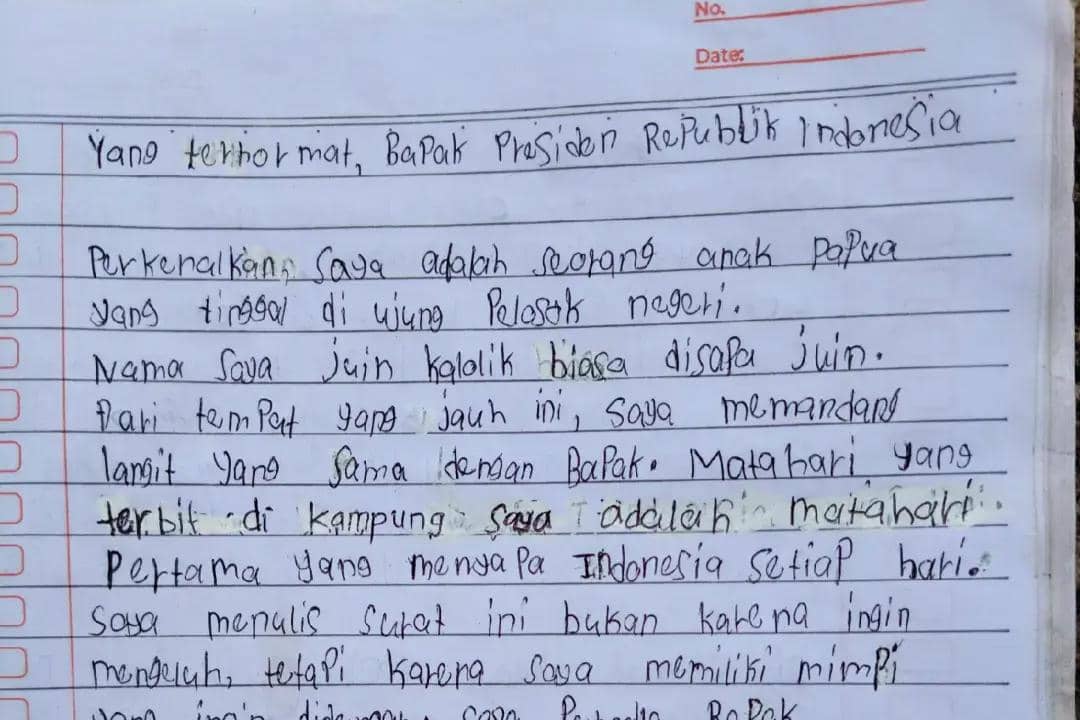 No.
Date:
Yang terhormat, Bapak Presiden Republik Indonesia
Perkenalkan, Saya adalah seorang anak Papua
yang tinggal di ujung Pelosok negeri.
Nama Saya juin kalolik biasa disapa juin.
Dari tempat yang jauh ini, saya memandang
langit yang Sama dengan Bapak. Matahari yang
terbit di kampung saya adalah matahari
Pertama yang menyapa Indonesia Setiap hari.
Saya menulis Surat ini bukan karena ingin
mengeluh, tetapi karena Saya memiliki mimpi
yang ingin BaPak